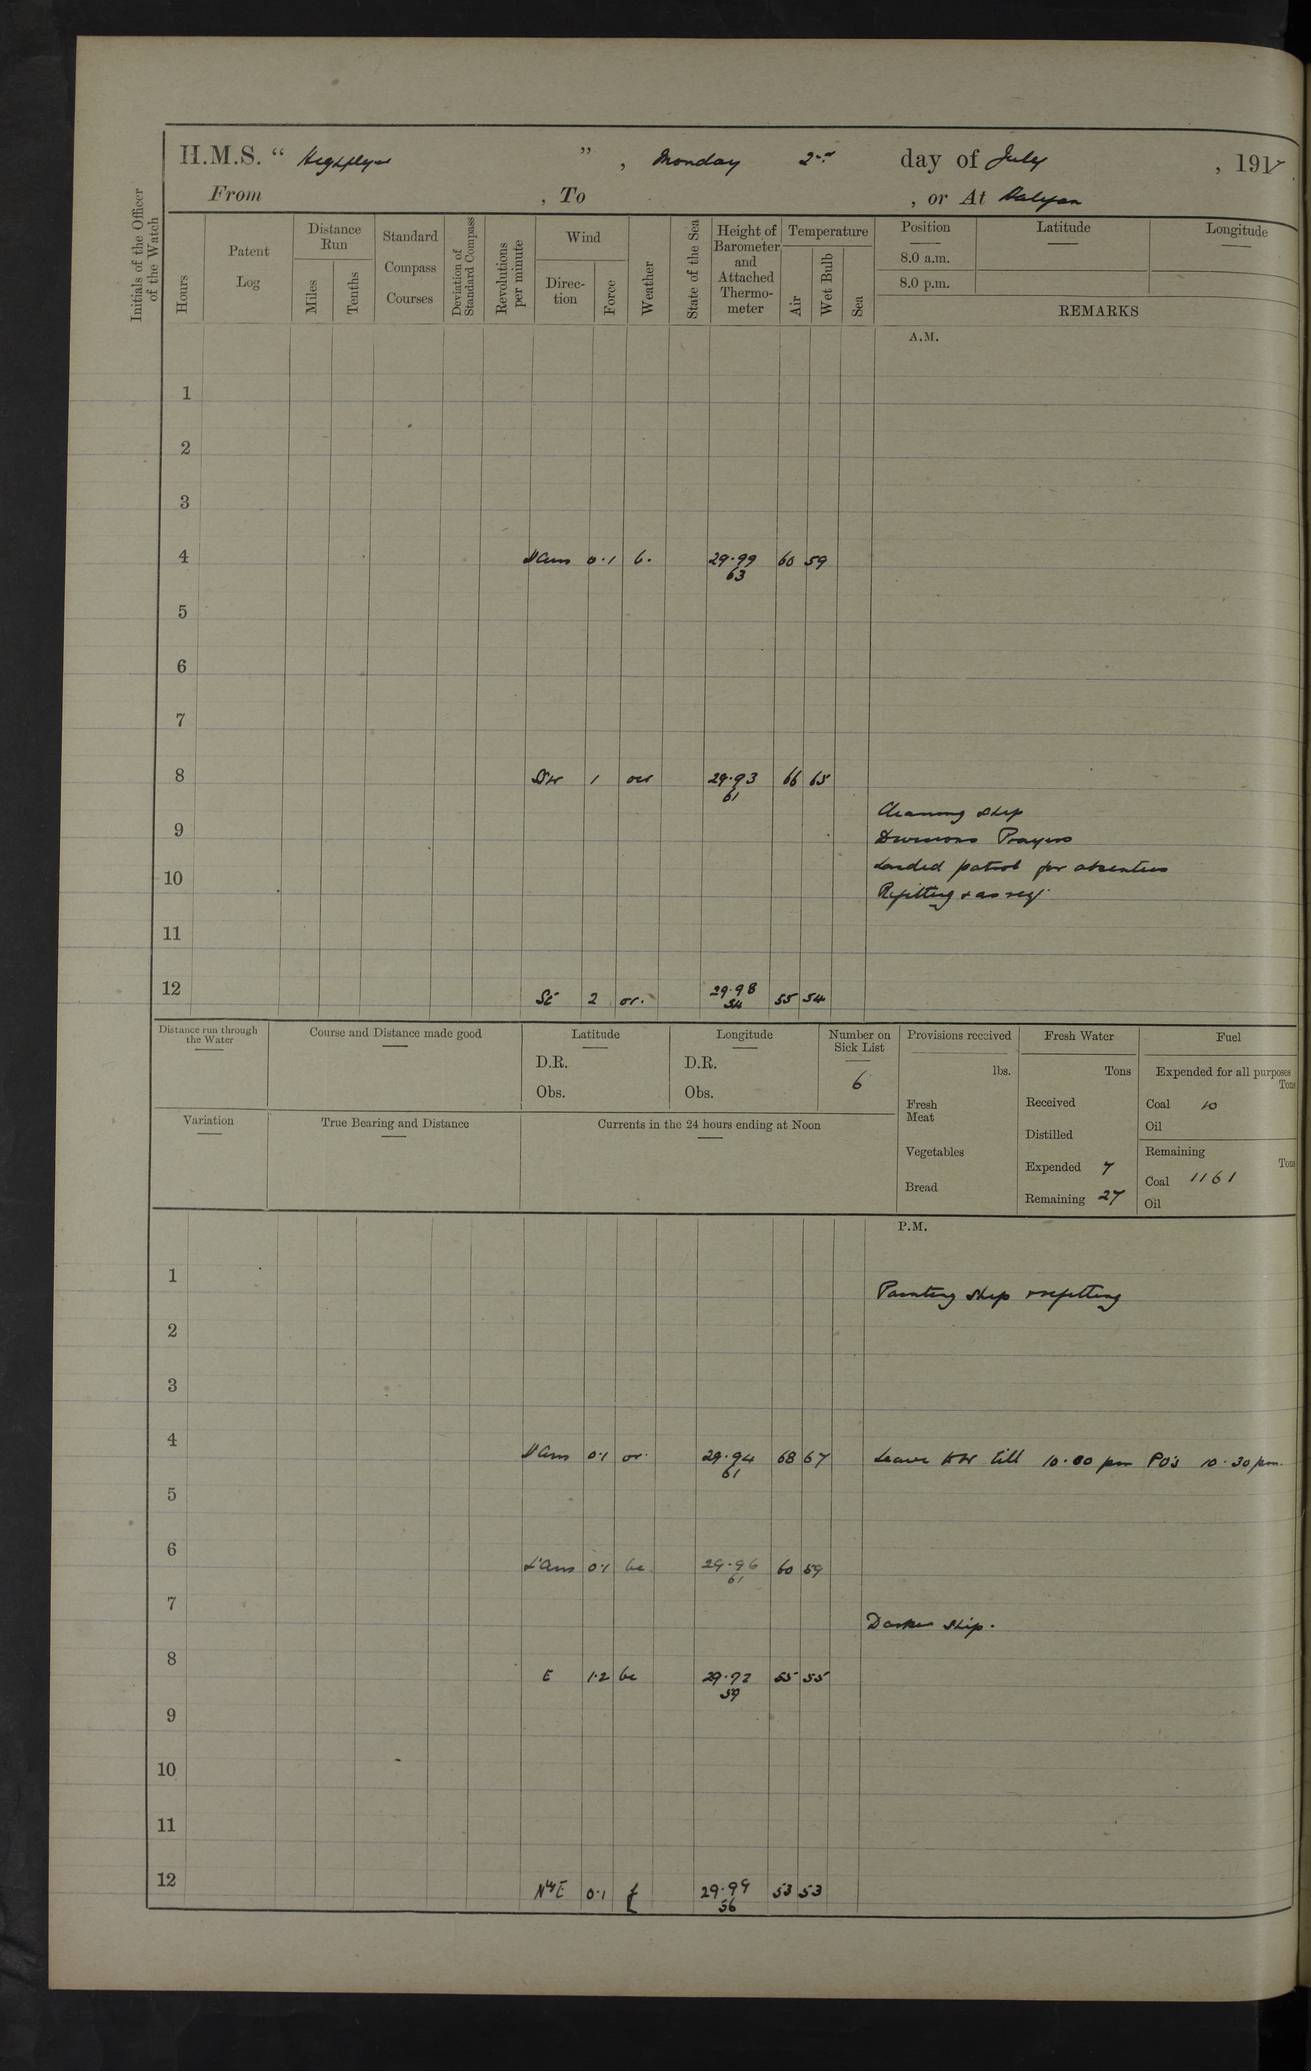 H.M.S. “ Highflyer ” , Monday 2nd day of July , 1917
From , To , or At Halifax
Initials of the Officer of the Watch
Hours
Patent Log
Distance Run
Miles
Tenths
Standard Compass Courses
Deviation of Standard Compass
Revolutions per minute
Wind
Direc-tion
Force
Weather
State of the Sea
Height of Barometer and Attached Thermo-meter
Temperature
Air
Wet Bulb
Sea
Position
8.0 a.m.
8.0 p.m.
Latitude
Longitude
REMARKS
A.M.
1
2
3
4 0·1 b. 29·99 60 59
63
5
6
7
8 SW 1 29·93 66 65
61
Cleaning ship
9 Divisions Prayers
Landed patrol for absentees
10 Refitting & as req.
11
12 SE 2 or. 29·98 55 54
54
Distance run through the Water
Course and Distance made good
Latitude
D.R.
Obs.
Longitude
D.R.
Obs.
Number on Sick List
6
Provisions received
lbs.
Fresh Meat
Vegetables
Bread
Fresh Water
Tons
Received
Distilled
Expended 7
Remaining 27
Fuel
Expended for all purposes
Tons
Coal 10
Oil
Remaining
Tons
Coal 1161
Oil
Variation
True Bearing and Distance
Currents in the 24 hours ending at Noon
P.M.
1 Painting ship & refitting
2
3
4 0·1 or. 29·94 68 67 Leave to till 10·00 pm PO's 10·30 pm.
61
5
6 0·1 bc 29·96 60 59
61
7 Darken ship.
8 E 1·2 bc 29·92 55 55
59
9
10
11
12 NyE 0·1 f 29·99 53 53
56